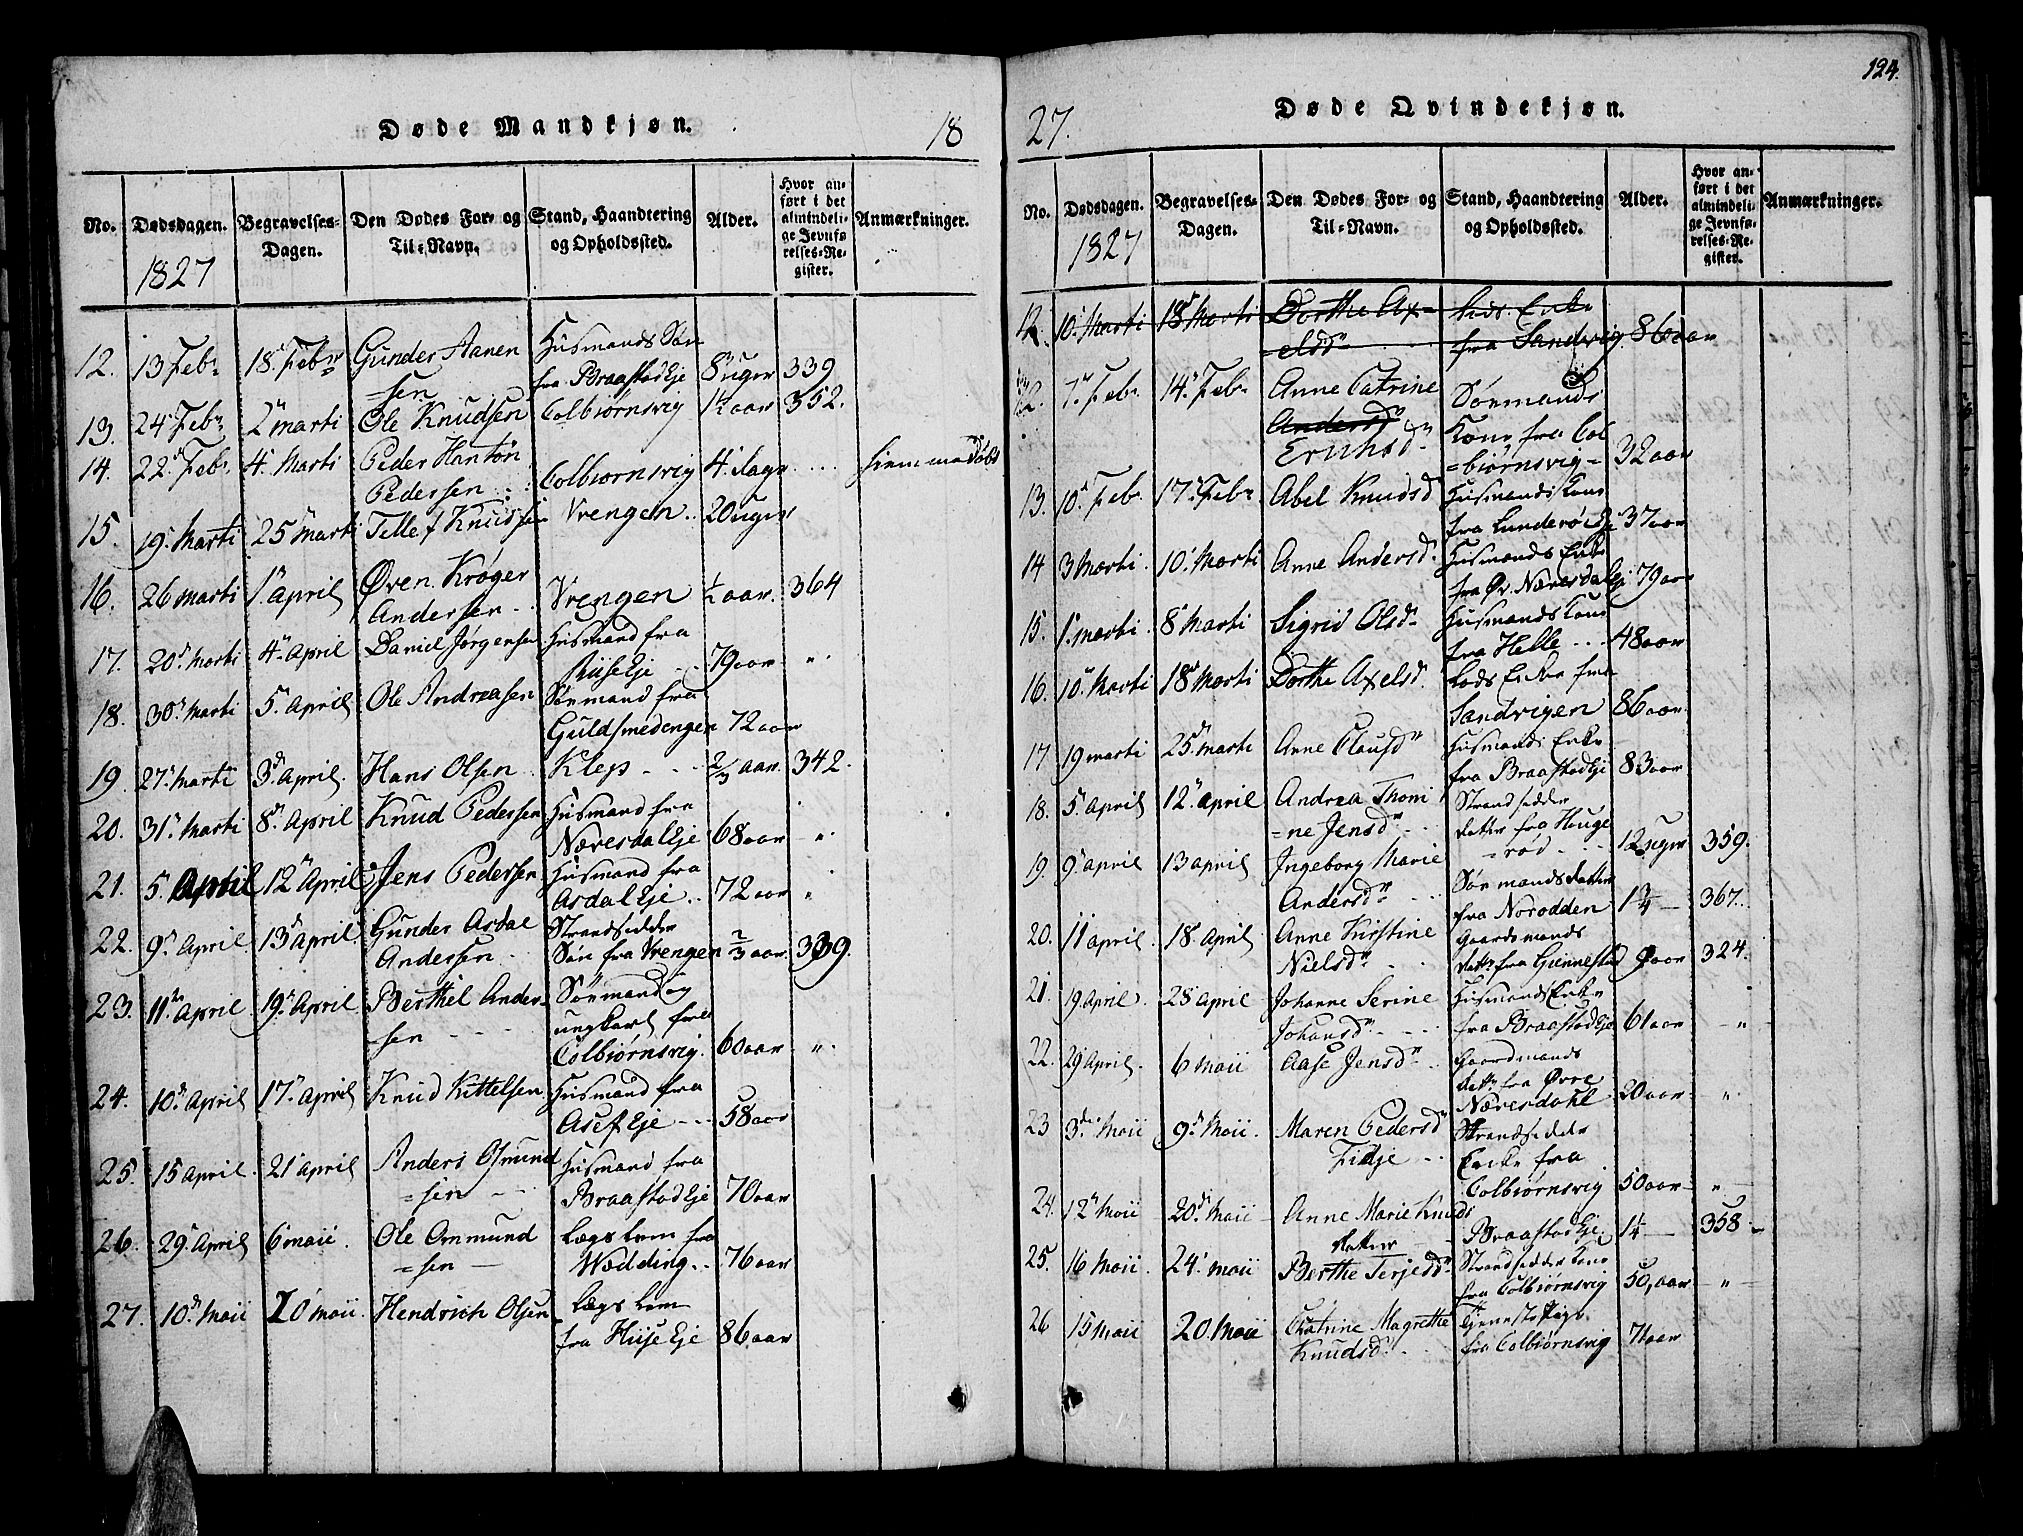 Døde Mandkjøn.
18
No.
Dødsdagen.
1827
Begravelses-
Dagen.
Den Dødes For- og
Til-Navn.
Stand, Haandtering
og Opholdssted.
Alder.
Hvor an-
ført i det
almindeli-
ge Jevnfø
relses-Re-
gister.
Anmærkninger.
12. 13 Febr 18. Febr Gunder Aanen
sen
Husmands Søn
fra Braastad Eje 8 uger 339
13. 24 Febr 2 Marti Ole Knudsen Colbiørnsvig 1½ aar 352.
14. 22. Febr. 4. Marti Peder Hantøn
Pedersen Colbiørnsvig 4. dage .... hiemmedøbt
15. 19. Marti 25 Marti Tellef Knudsen Vrengen .. 20 uger
16. 26 Marti 1. April Øven Krøger
Andersen .. Vrengen ½ aar. 364
17. 20. Marti 4. April Daniel Jørgensen Husmand fra
Riise Eje .. 79 aar "
18. 30. Marti 5. April Ole Andreasen Sømand fra
Guldsmedengen 72 aar
19 27. Marti 3. April. Hans Olsen .. Klep ... 2/3 aar. 342.
20. 31. Marti 8. April Knud Pedersen Husmand fra
Næresdal Eje 68 aar "
21. 5. April 12 April Jens Pedersen Husmand fra
Asdal Eje .. 72 aar "
22. 9. April 13 April. Gunder Asdal
Andersen .
Strandsidder
Søn fra Vrengen 2/3 aar 339.
23. 11. April 19. April Berthel Ander-
sen - -
Sømand og
ungkarl fra
Colbiørnsvig. 60 aar "
24. 10. April 17. April Knud Kittelsen Husmand fra
Asef Eje -- 58 aar
25. 15 April. 21 April Anders Osmund
=sen - -
Husmand fra
Braastad Eje 70 aar
26. 29. April 6 Maii. Ole Ommund
=sen -
Lægs Lem fra
Wedding .. 76 aar
27. 10. Maii 20 Maii Hendrich Olsen Lægs Lem
fra Huse Eje 86 aar
124.
27.
Døde Qvindekjøn.
No.
Dødsdagen.
1827
Begravelses-
Dagen.
Den Dødes For- og
Til-Navn.
Stand, Haandtering
og Opholdssted.
Alder.
Hvor an-
ført i det
almindeli-
ge Jevnfø-
relses-Re-
gister.
Anmærkninger.
12. 10. Marti 18 Marti Dorthe Ax-
=elsd
Lods Enke
fra Sandvig 86 aar
12. 7. Febr 14. Febr Anne Catrine
Andersd
Sømands
Kone fra Col
=biørnsvig = 32 aar
13. 10. Febr 17. Febr Abel Knudsd Husmands Kone
fra Lunderø Eje 37 aar
14 3 Marti. 10. Marti Anne Andersd. Husmands Enke
fra Øv. Næresdal Eje 79 aar
15. 1. Marti. 8 Marti Sigrid Olsd Husmands Kone
fra Helle ... 48 aar
16. 10. Marti 18 Marti Dorthe Axelsd. Lods Enke fra
Sandvigen 86 aar.
17 19 Marti 25 Marti Anne Clausd Husmands Enke
fra Braastad Eje 83 aar
18. 5. April 12. April Andrea Thomi
=ne Jensd
Strandsidder
datter fra Houge
=rød .... 12 uger 359.
19. 9. April 13 April Ingeborg Marie
Andersd
Sømands datter
fra Norodden 1¼ — 367.
20. 11 April. 18 April Anne Kirstine
Nielsd
Gaardmands
datr fra Giennestad 9 aar 324.
21. 19. April. 28 April Johanne Serine
Johansd
Husmands Enke
fra Braastad Eje 61 aar "
22. 29 April. 6 Maii Aase Jensd Gaardmands
datr fra Øvre
Næresdahl 20 aar "
23 3. Maii 9. Maii. Maren Pedersd
Fidje ..
Strandsidder
Enke fra
Colbiørnsvig 50 aar "
24. 12 Maii 20. Maii Anne Marie Knuds
datter
Braastad Eje. 1¼ — 358 -
25. 16 Maii. 24. Maii Berthe Terjesd Strandsidder Kone
fra Colbiørnsvig 50, aar "
26 15 Maii 20. Maii Chatrine Magrethe
Knudsd.
Tjeneste Pige.
fra Colbiørnsvig 71 aar